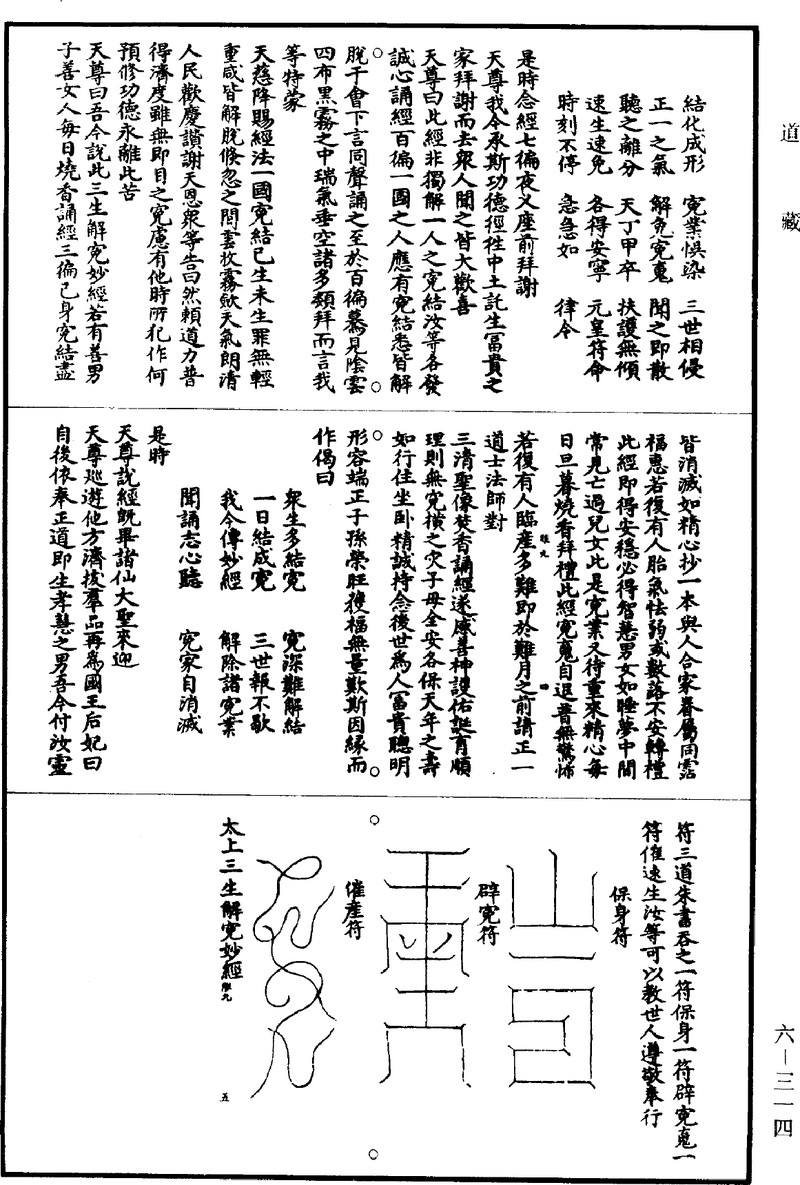 道藏
結化成形　冤業悞染　三世相侵
正一之氣　解免冤䰟　聞之即散
聽之離分　天丁甲卒　扶護無傾
速生速免　各得安寧　元皇符命
時刻不停　急急如　律令
是時念經七徧夜义座前拜謝
天尊我今承斯功德徑往中土託生冨貴之
家拜謝而去衆人聞之皆大歡喜
天尊曰此經非獨解一人之冤結汝等各發
誠心誦經百徧一國之人應有冤結悉皆解
脫千會下言同聲誦之至於百徧驀見陰雲
四布黑霧之中瑞氣垂空諸多類拜而言我
等特蒙
天慈降賜經法一國冤結已生未生罪無輕
重咸皆解脫倏忽之間雲收霧歛天氣朗清
人民歡慶讚謝天恩衆等告曰然賴道力普
得濟度雖無即目之冤慮有他時所犯作何
預修功德永離此苦
天尊曰吾今說此三生解冤妙經若有善男
子善女人每日燒香誦經三徧己身冤結盡
皆消滅如精心抄一本與人合家眷屬同霑
福惠若復有人胎氣怯弱或數落不安轉禮
此經即得安穩必得智慧男女如睡夢中間
常見亡過兒女此是冤業又待重來精心每
日旦暮燒香拜禮此經冤䰟自退普無驚怖
若復有人臨産多難即於難月之前請正一
道士法師對
三清聖像焚香誦經遂感善神護佑誕育順
理則無冤橫之灾子母全安各保天年之壽
如行住坐卧精誠持念後世爲人冨貴聰明
形容端正子孫榮旺獲福無量歎斯因緣而
作偈曰
衆生多結冤　冤深難解結
一日結成冤　三世報不歇
我今傳妙經　解除諸冤業
聞誦志心聽　冤家自消滅
是時
天尊說經旣畢諸仙大聖來迎
天尊廵遊他方濟拔羣品再爲國王后妃曰
自後依奉正道即生孝慧之男吾今付汝靈
符三道朱書吞之一符保身一符辟冤䰟一
符催速生汝等可以教世人遵敬奉行
保身符
辟冤符
催産符
太上三生解冤妙經
五
六－三一四